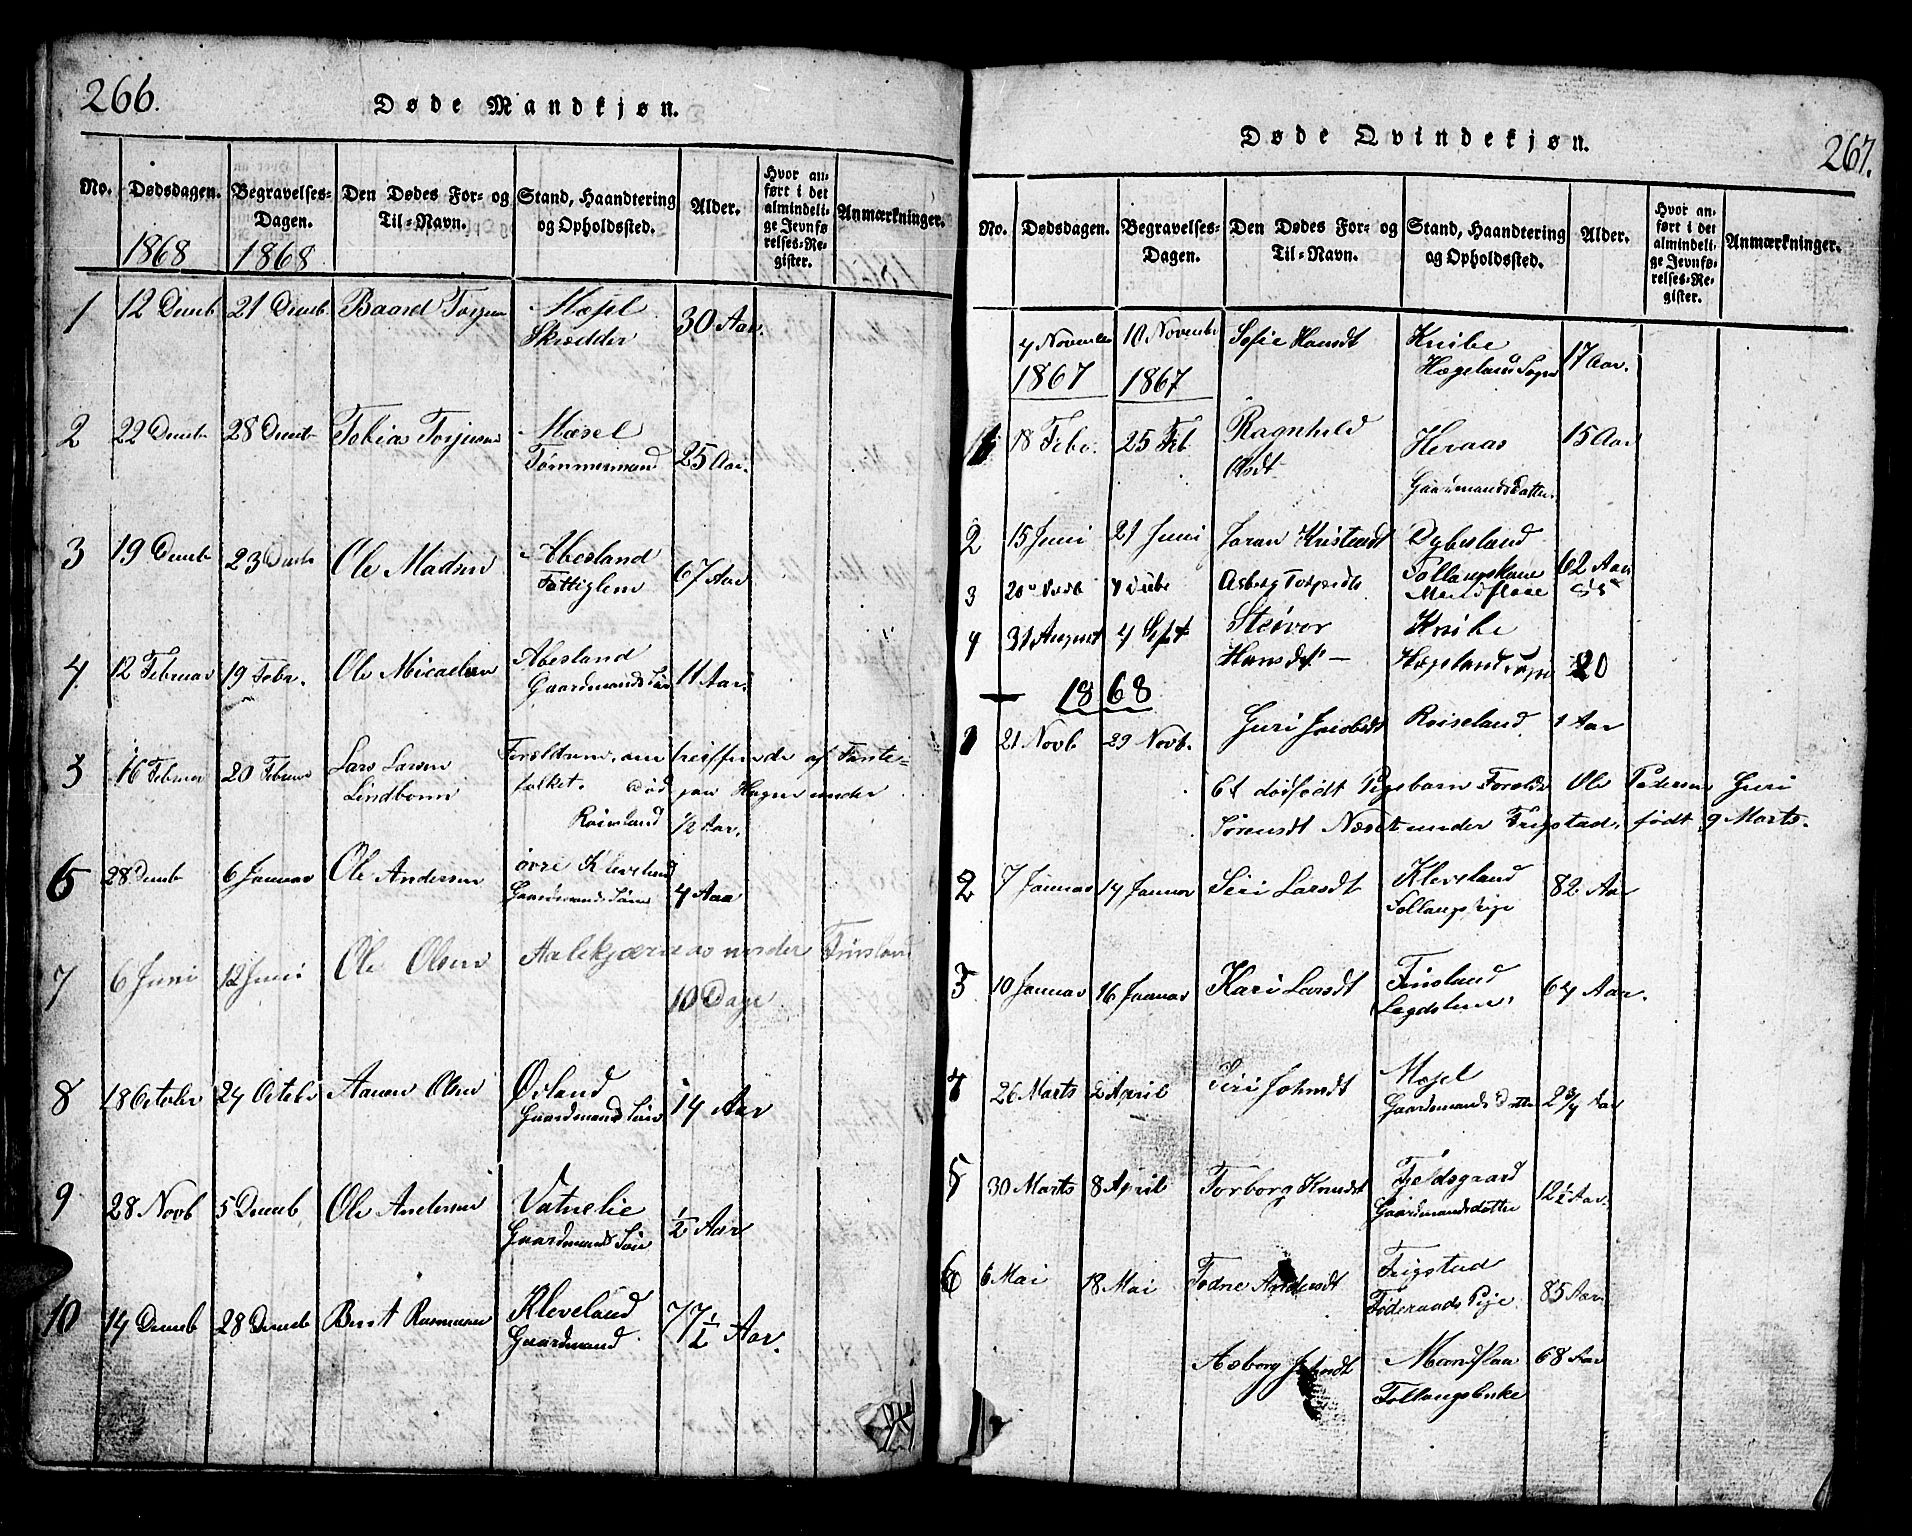 266.
Døde Mandkjøn.
No. Dødsdagen. Begravelses-Dagen. Den Dødes For- og Til-Navn. Stand, Haandtering og Opholdssted. Alder. Hvor anført i det almindelige Jevnførelses-Register. Anmærkninger.
1868 1868
1 12 Decmb 21 Decmb. Baard Torjusen Mæsel 30 Aar.
Skrædder
2 22 Decmb 28 Decmb Tobias Torjusen Mæsel 25 Aar.
Tømmermand
3 19 Decmb 23 Decmb Ole Madsen Abesland 67 Aar
Fattiglem
4 12 Februar 19 Febr. Ole Micaelsen Abesland 11 Aar.
Gaardmands Søn
5 16 Februar 20 Februar Lars Larsen Forældrene omstreiffende af Fante-
Lindbom folket. død paa Hagen under
Roiseland 1/2 Aar.
6 28 Decmb 6 Januar Ole Andersen øvre Kleveland 4 Aar
Gaardmands Søn
7 6 Juni 12 Juni Ole Olsen Aalekjærnaas under Finsland
10 Dage
8 18 October 24 October Aanon Olsen Øsland 14 Aar
Gaardmands Søn
9 28 Novb 5 Decmb Ole Andersen Vatnelie 1/2 Aar
Gaardmands Søn
10 14 Decmb 28 Decmb Bent Rasmusen Kleveland 77 1/2 Aar.
Gaardmand
267.
Døde Qvindekjøn.
No. Dødsdagen. Begravelses-Dagen. Den Dødes For- og Til-Navn. Stand, Haandtering og Opholdssted. Alder. Hvor anført i det almindelige Jevnførelses-Register. Anmærkninger.
4 November 10 November Sofie Hansdt Knibe 17 Aar.
1867 1867 Hægelands Sogn
1 18 Febr. 25 Feb Ragnhild Heraas 15 Aar
Olsdt Gaardmandsdatter
2 15 Juni 21 Juni Dybesland 62 Aar
3 Asborg Mandflaae
4 31 August 4 Sept Knibe 20
Hansdt – Hægelands Sogn
1868
1 21 Novb 29 Novb. Guri Jacobsdt Roiseland 1 Aar
Et dødfødt Pigebarn Foreldr Ole Pedersen Guri
Sørensdt Næset under Frigstad, født 9 Marts.
2 7 Januar 14 Januar Siri Larsdt Kleveland 82 Aar
3 10 Januar 16 Januar Kari Larsdt Finsland 64 Aar.
Lægdslem
4 26 Marts 2 April Siri Johnsdt Mæsel 2 3/4 Aar
Gaardemands datter
5 30 Marts 8 April Torborg Knudsdt Fjeldsgaard 12 1/2 Aar.
Gaardmandsdatter
6 6 Mai 18 Mai Todne Andersdt Frigstad 85 Aar
Føderaads Pige
Aasborg Mandflaa 68 Aar